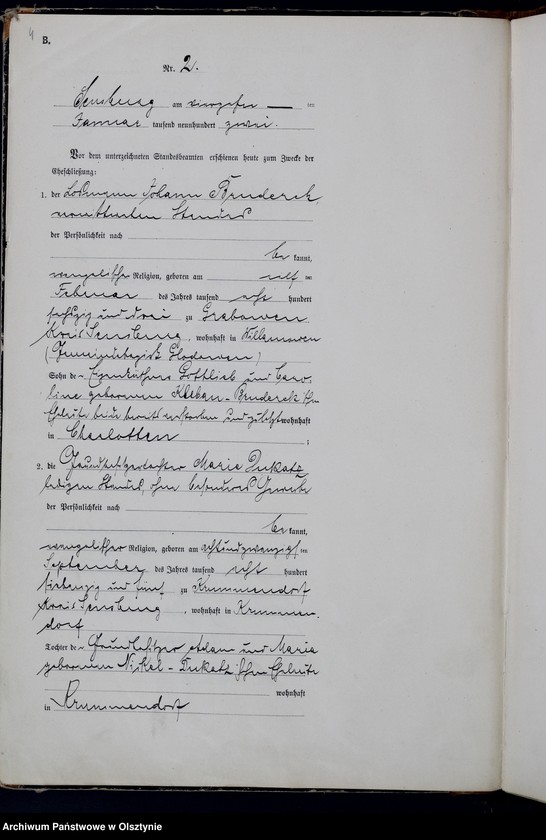 4
B.
Nr. 2.
Sensburg am vierzehn ten
Januar tausend neunhundert zwei.
Vor dem unterzeichneten Standesbeamten erschienen heute zum Zwecke der
Eheschließung:
1. der Losmann Johann Bruderek
Standes
der Persönlichkeit nach
be kannt,
evangelischer Religion, geboren am elf ten
Februar des Jahres tausend acht hundert
sechzig und drei zu Grabowen
Kreis Sensburg, wohnhaft in
(Gemeindebezirk Glodowen)
Sohn de Gottlieb und Caro-
line geborenen - Bruderek'schen
Eheleute beide bereits verstorben und zuletzt wohnhaft
in Charlotten ;
2. die Grundbesitzertochter Marie Dukatz
ledigen Standes, ohne besonderes Gewerbe
der Persönlichkeit nach
be kannt,
evangelischer Religion, geboren am achtundzwanzigs ten
September des Jahres tausend acht hundert
siebenzig und fünf zu Krummendorf
Kreis Sensburg, wohnhaft in Krummen-
dorf
Tochter de Grundbesitzer Adam und Maria
geborenen Nickel - Dukatz'schen Eheleute
wohnhaft
in Krummendorf
Archiwum Państwowe w Olsztynie